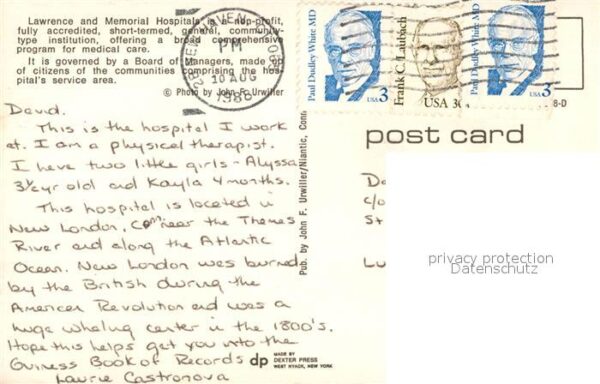 Lawrence and Memorial Hospitals is a non-profit,
fully accredited, short-termed, general, community-
type institution, offering a broad comprehensive
program for medical care.
It is governed by a Board of Managers, made up
of citizens of the communities comprising the hos-
pital's service area.
© Photo by John F. Urwiller
NEW HAVEN
PM
10 AUG
1988
Paul Dudley White MD
USA 3
Frank C. Laubach
USA 30
Paul Dudley White MD
USA 3
8-D
David.
This is the hospital I work
at. I am a physical therapist.
I have two little girls - Alyssa
3½ yr old and Kayla 4 months.
This hospital is located in
New London, Conn near the Themes
River and along the Atlantic
Ocean. New London was burned
by the British during the
American Revolution and was a
huge whaling center in the 1800's.
Hope this helps get you into the
Guiness Book of Records
Laurie Castronova
Pub. by John F. Urwiller/Niantic, Conn
post card
c/o
St
privacy protection
Datenschutz
dp
MADE BY
DEXTER PRESS
WEST NYACK, NEW YORK